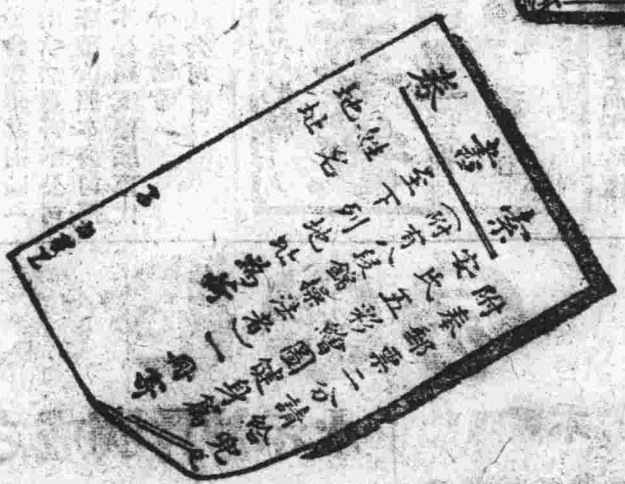 索書券
附奉郵票二分請給
安氏五彩繪圖健身
(附有八段錦操法者)一冊寄
至下列地址為荷
姓名
地址